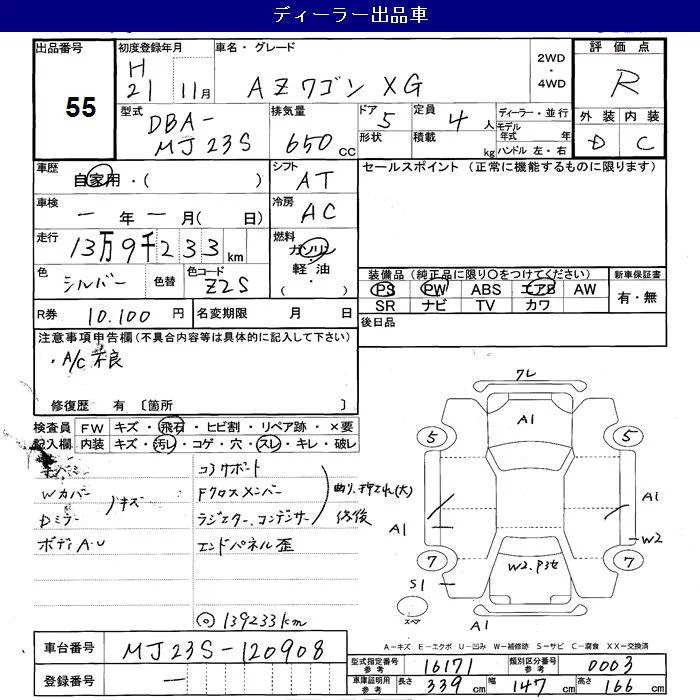 ディーラー出品車
出品番号 55
初度登録年月 H21 11月
車名・グレード AZワゴン XG
2WD・4WD
評価点 R
外装 D 内装 C
型式 DBA-MJ23S
排気量 650cc
ドア 5 形状
定員 4人 積載 kg
ディーラー・並行
モデル年式 年式
ハンドル 左・右
車歴 自家用・( )
シフト AT
セールスポイント (正常に機能するものに限ります)
車検 ー年ー月( 日)
冷房 AC
走行 13万9千233km
燃料 ガソリン・軽油・( )
色 シルバー 色替 色コード Z2S
装備品(純正品に限り○をつけてください)
PS PW ABS エアB AW
SR ナビ TV カワ
新車保証書 有・無
R券 10.100円
名変期限 月 日
後日品
注意事項申告欄(不具合内容等は具体的に記入して下さい)
・A/C不良
修復歴 有 〔箇所 〕
検査員記入欄
FW キズ・飛石・ヒビ割・リペア跡・×要
内装 キズ・汚レ・コゲ・穴・スレ・キレ・破レ
Wカバー
Dミラー
キズ
ボディA.U
コアサポート
Fクロスメンバー
ラジエター、コンデンサー
曲り、押され(大)
修復
エンドパネル歪
◎139233km
ワレ
A1
5
5
A1
A1
W2
7
7
W2.P3セ
S1
スペア
A1
A-キズ E-エクボ U-凹み W-補修跡 S-サビ C-腐食 XX-交換済
車台番号 MJ23S-120908
登録番号 ー
型式指定番号参考 16171 類別区分番号参考 0003
車庫証明用参考 長さ 339cm 幅 147cm 高さ 166cm